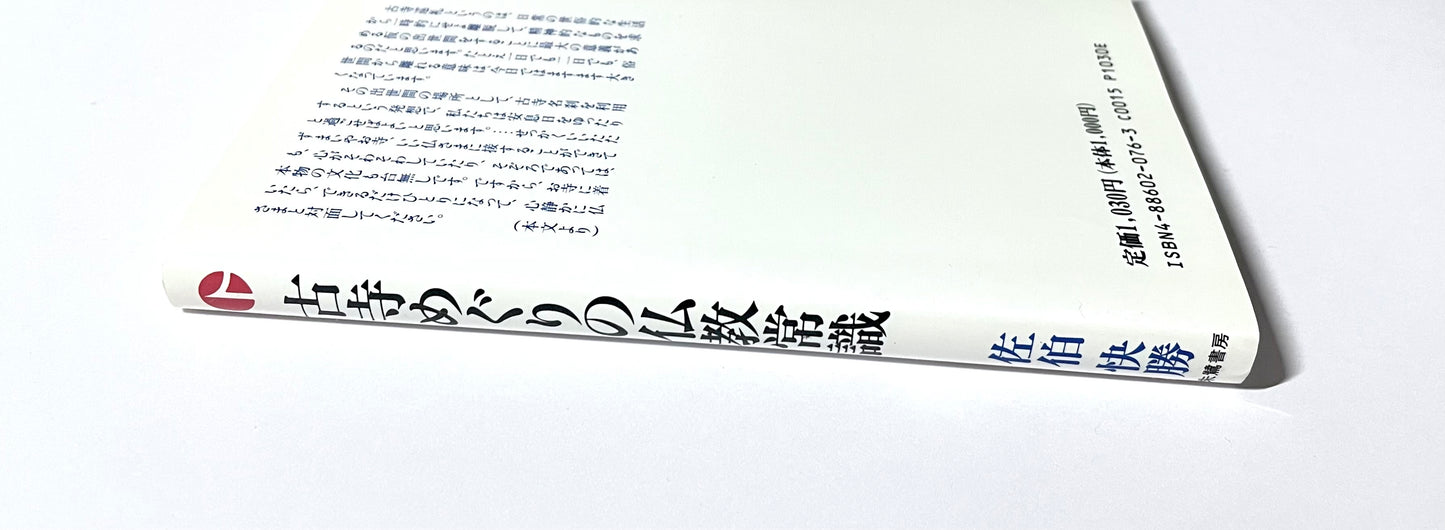 古寺巡礼というのは、日常の世俗的な生活
から一時的にせよ離脱して、精神的なものを求
める仮の出世間をすることに最大の意義があ
るのだと思います。たとえ一日でも二日でも、俗
世間から離れる意味は、今日ではますます大き
くなっています。
その出世間の場所として、古寺名刹を利用
するという発想で、私たちは安息日をゆったり
と過ごせばよいと思います。……せっかくいいたた
ずまいやお寺、いい仏さまに接することができて
も、心がそわそわしていたり、そぞろであっては、
本物の文化も台無しです。ですから、お寺に着
いたら、できるだけひとりになって、心静かに仏
さまと対面してください。
(本文より)
定価1,030円(本体1,000円)
ISBN4-88602-076-3 C0015 P1030E
古寺めぐりの仏教常識
佐伯快勝
朱鷺書房